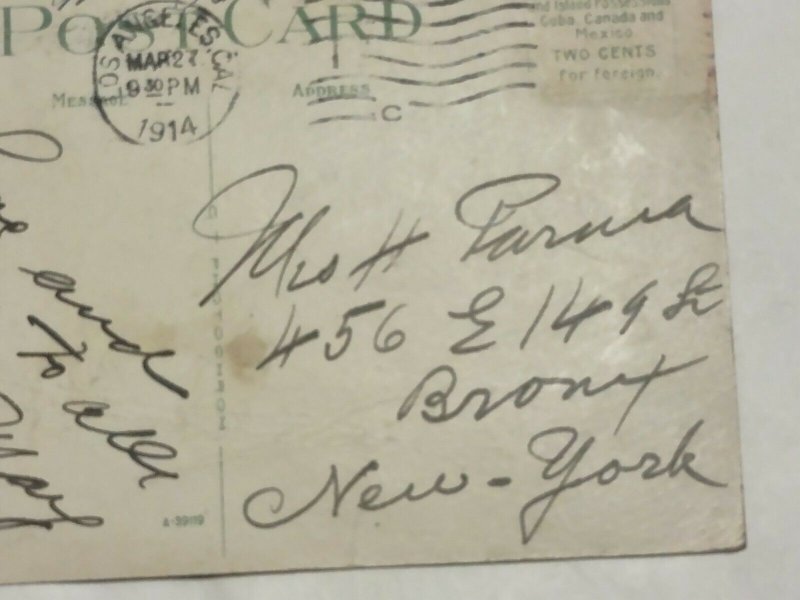 POST CARD
LOS ANGELES, CAL
MAR 27
9 30 PM
1914
C
and Island Possessions
Cuba, Canada and
Mexico.
TWO CENTS
for foreign.
MESSAGE
ADDRESS
and
to all
Mrs H Parma
456 E 149 St
Bronx
New-York